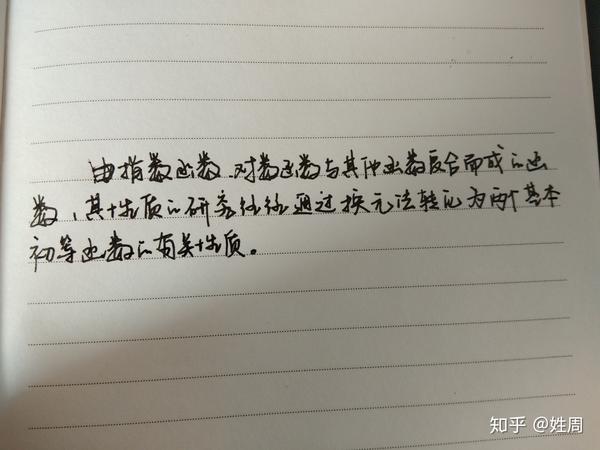 由指数函数 对数函数与其他函数复合而成的函
数,其性质的研究往往通过换元法转化为两个基本
初等函数的有关性质。
知乎 @姓周